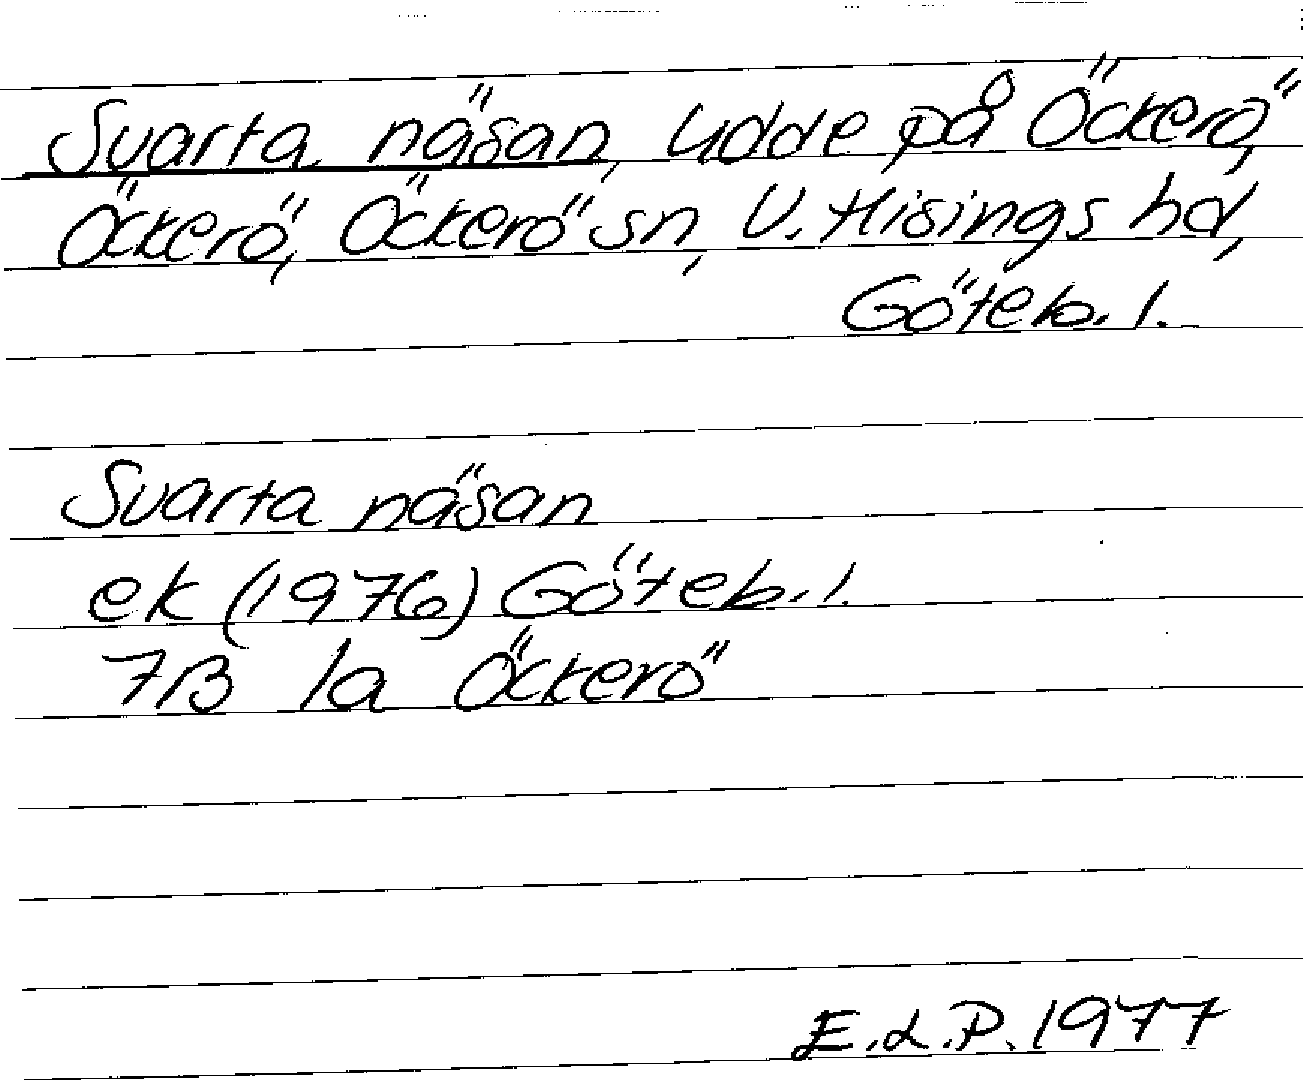 Svarta näsan, udde på Öckerö,
Öckerö, Öckerö sn, V. Hisings hd,
Göteb. l.
Svarta näsan
ek (1976) Göteb. l.
7B 1a Öckerö
E.L.P. 1977